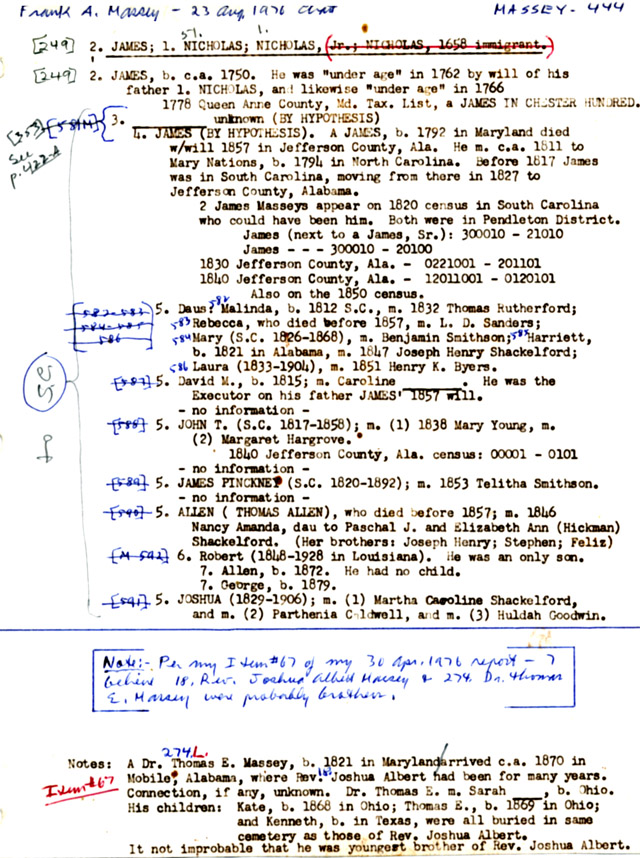 Frank A. Massey - 23 Aug 1976 cont
MASSEY - 444
[249] 2. JAMES; 1. NICHOLAS; NICHOLAS, Jr.; NICHOLAS, 1658 immigrant.
[249] 2. JAMES, b. c.a. 1750. He was "under age" in 1762 by will of his
father 1. NICHOLAS, and likewise "under age" in 1766
1778 Queen Anne County, Md. Tax. List, a JAMES IN CHESTER HUNDRED.
3. unknown (BY HYPOTHESIS)
See
p. 422-A
4. JAMES (BY HYPOTHESIS). A JAMES, b. 1792 in Maryland died
w/will 1857 in Jefferson County, Ala. He m. c.a. 1811 to
Mary Nations, b. 1794 in North Carolina. Before 1817 James
was in South Carolina, moving from there in 1827 to
Jefferson County, Alabama.
2 James Masseys appear on 1820 census in South Carolina
who could have been him. Both were in Pendleton District.
James (next to a James, Sr.): 300010 - 21010
James - - - 300010 - 20100
1830 Jefferson County, Ala. - 0221001 - 201101
1840 Jefferson County, Ala. - 12011001 - 0120101
Also on the 1850 census.
[582-583 5. Daus: 582 Malinda, b. 1812 S.C., m. 1832 Thomas Rutherford;
584-585 583 Rebecca, who died before 1857, m. L. D. Sanders;
586] 584 Mary (S.C. 1826-1868), m. Benjamin Smithson; 585 Harriett,
b. 1821 in Alabama, m. 1847 Joseph Henry Shackelford;
586 Laura (1833-1904), m. 1851 Henry K. Byers.
[587] 5. David M., b. 1815; m. Caroline ______. He was the
Executor on his father JAMES' 1857 will.
- no information -
[588] 5. JOHN T. (S.C. 1817-1858); m. (1) 1838 Mary Young, m.
(2) Margaret Hargrove.
1840 Jefferson County, Ala. census: 00001 - 0101
- no information -
[589] 5. JAMES PINCKNEY (S.C. 1820-1892); m. 1853 Telitha Smithson.
- no information -
[590] 5. ALLEN ( THOMAS ALLEN), who died before 1857; m. 1846
Nancy Amanda, dau to Paschal J. and Elizabeth Ann (Hickman)
Shackelford. (Her brothers: Joseph Henry; Stephen; Feliz)
[M 592] 6. Robert (1848-1928 in Louisiana). He was an only son.
7. Allen, b. 1872. He had no child.
7. George, b. 1879.
[591] 5. JOSHUA (1829-1906); m. (1) Martha Caroline Shackelford,
and m. (2) Parthenia Caldwell, and m. (3) Huldah Goodwin.
Note:- Per my Item #67 of my 30 Apr. 1976 report - I
believe 18. Rev. Joshua Albert Massey & 274. Dr. Thomas
E. Massey were probably brothers.
274 L.
Notes: A Dr. Thomas E. Massey, b. 1821 in Maryland/arrived c.a. 1870 in
Item #67 Mobile, Alabama, where Rev. Joshua Albert had been for many years.
Connection, if any, unknown. Dr. Thomas E. m. Sarah ____, b. Ohio.
His children: Kate, b. 1868 in Ohio; Thomas E., b. 1869 in Ohio;
and Kenneth, b. in Texas, were all buried in same
cemetery as those of Rev. Joshua Albert.
It not improbable that he was youngest brother of Rev. Joshua Albert.